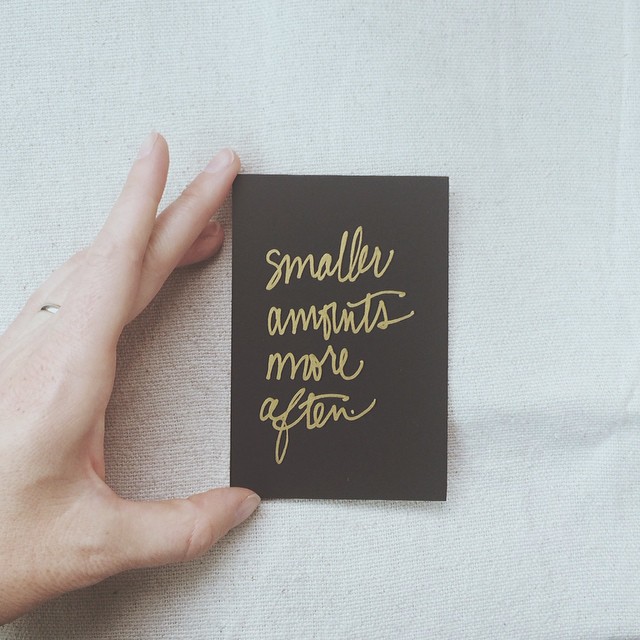 smaller
amounts
more
often.